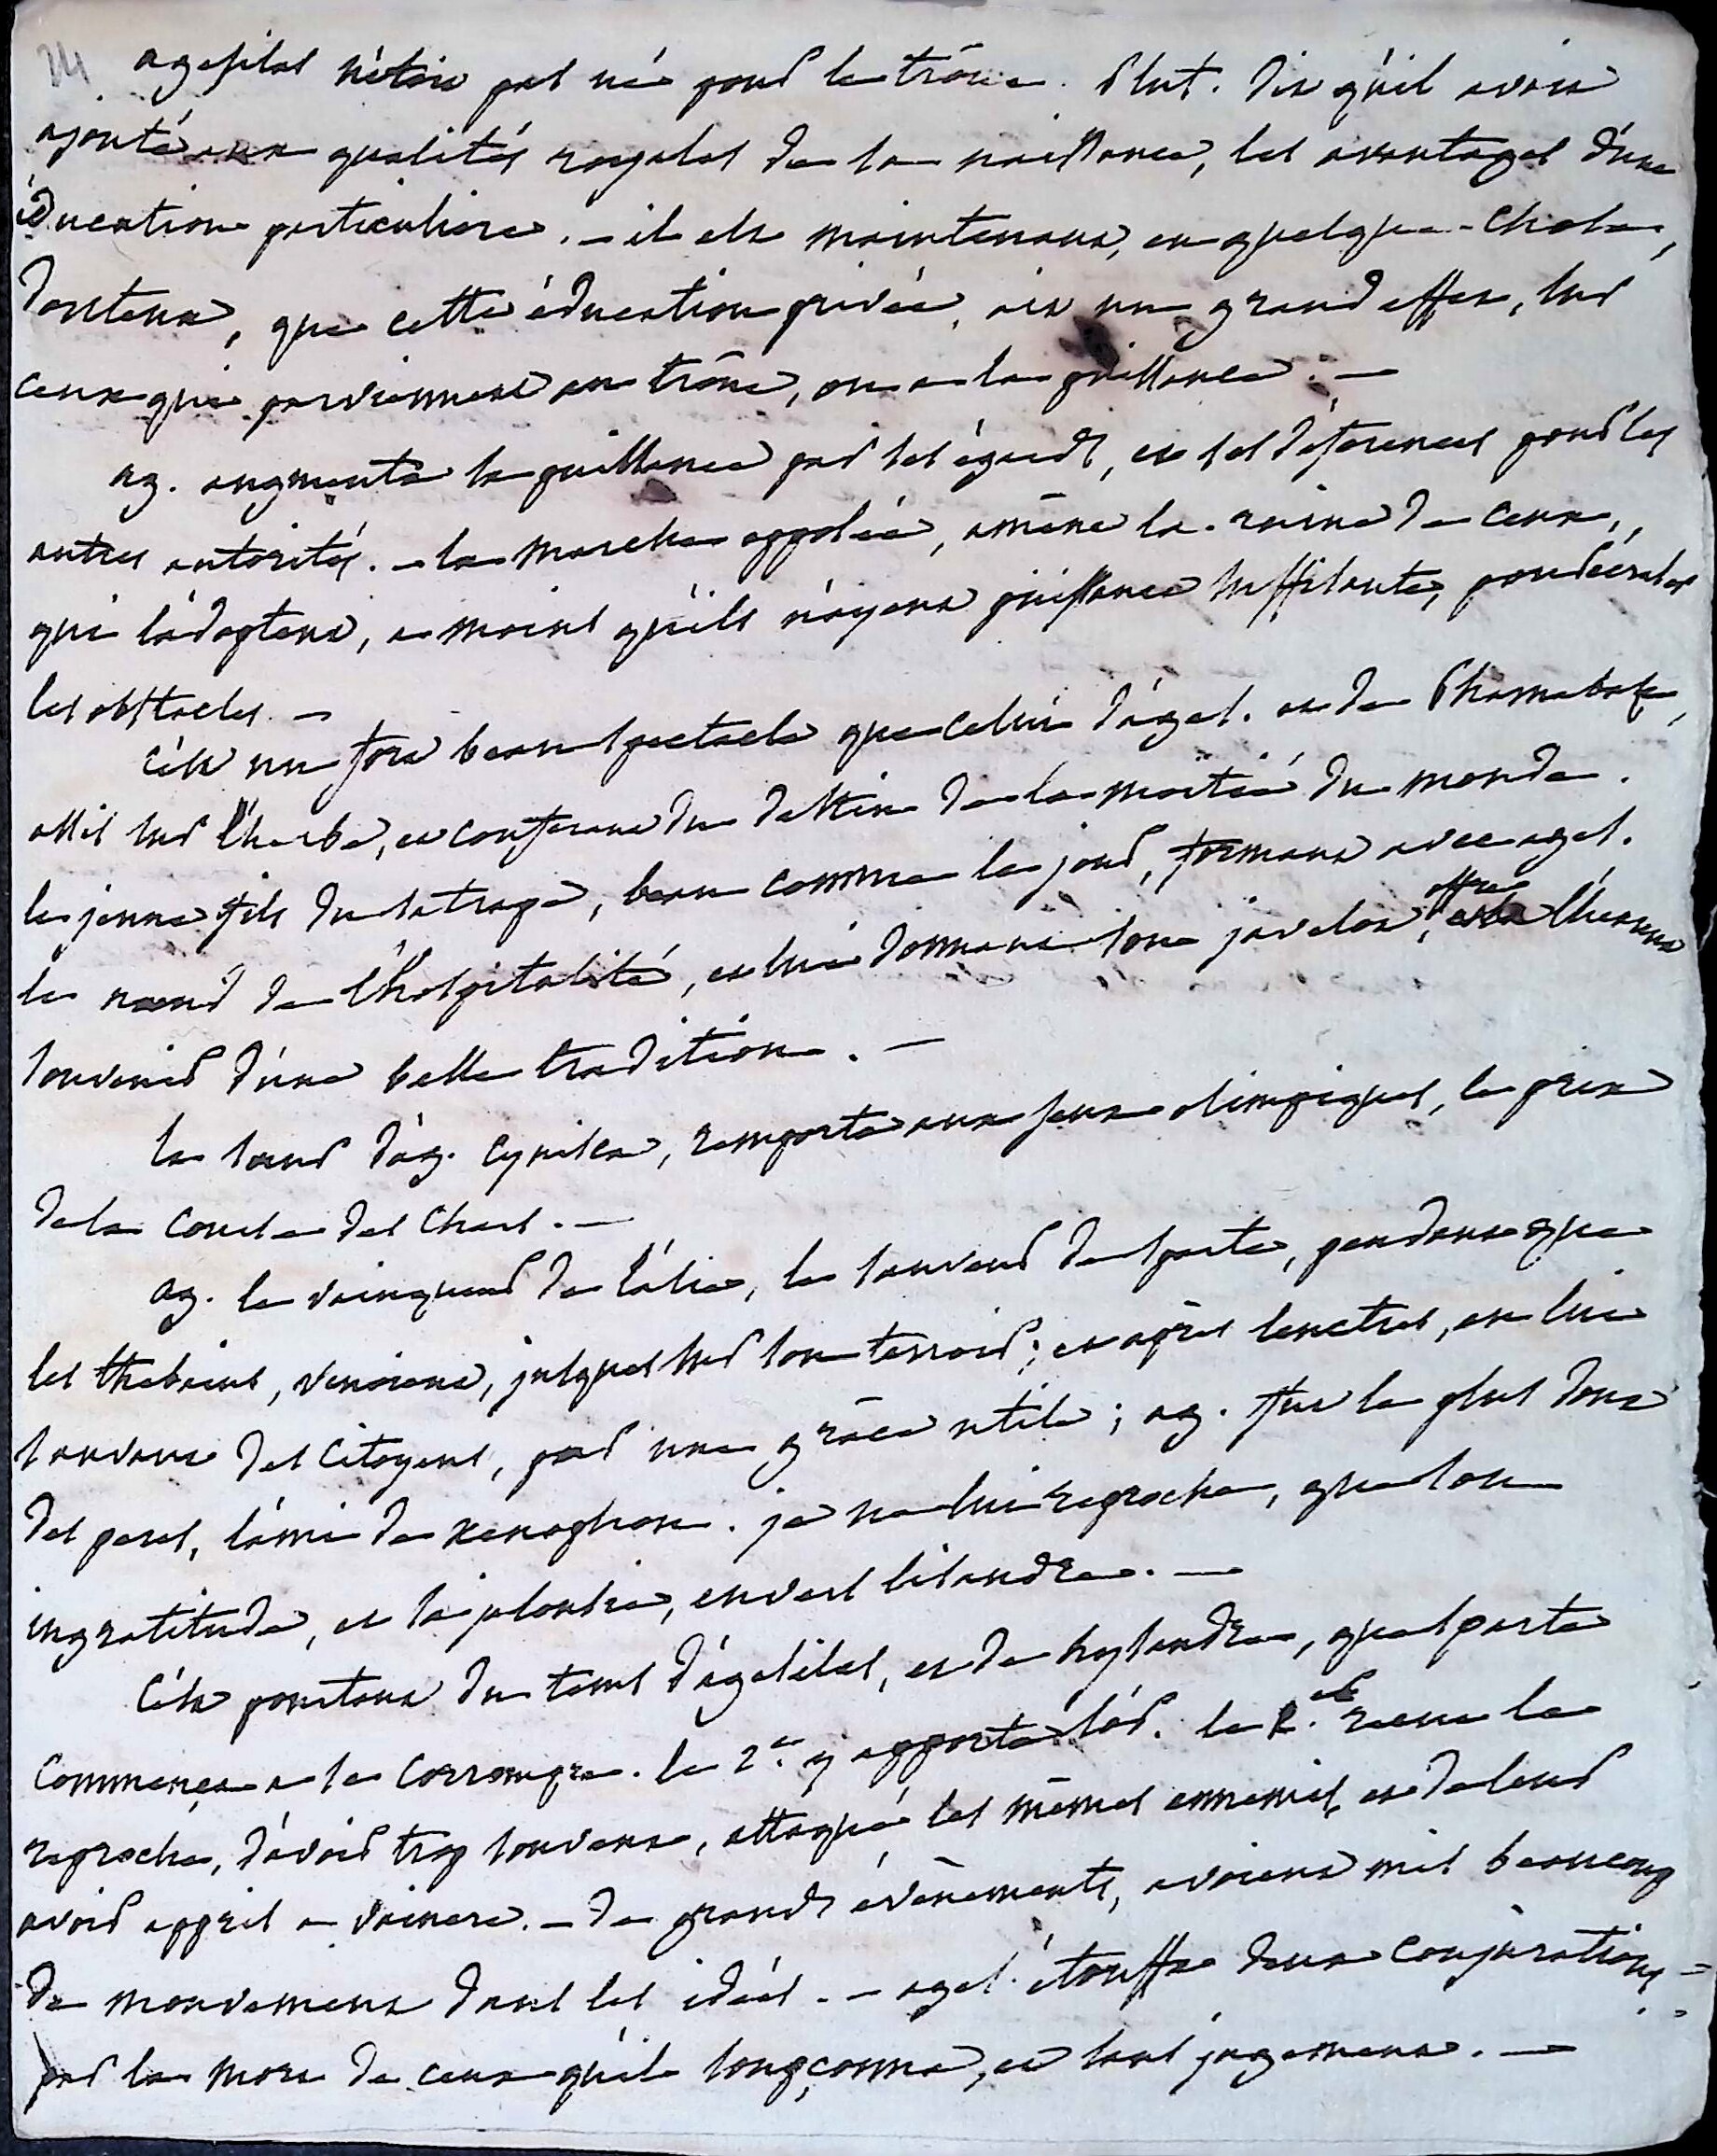 24
agesilas n'étoit pas né pour le trône. Plut. dit qu'il avoit
ajouté aux qualités royales de la naissance, les avantages d'une
éducation particuliere. – il est maintenant, en quelque-chose,
douteux, que cette éducation privée, ait un grand effet, sur
ceux qui parviennent au trône, ou a la puissance. –
ag. augmenta sa puissance par ses égards, et ses déferences pour les
autres autorités. – la marche opposée, amène la ruine de ceux,
qui l'adoptent, a moins qu'ils n'ayent puissance suffisante, pour écraser
les obstacles. –
c'est un fort beau spectacle que celui d'agés. et de Pharnabase,
assis sur l'herbe, et conferant du destin de la moitié du monde.
le jeune fils du satrape, beau comme le jour, formant avec agés.
le nœud de l'hospitalité, et lui donnant son javelot, offre l'heureux
souvenir d'une belle tradition. –
la sœur d'ag. Cynisca, remporta aux jeux olimpiques, le prix
de la course des chars. –
ag. le vainqueur de l'asie, le sauveur de sparte, pendant que
les thebains, venoient, jusques sur son terroir; et après leuctres, en lui
sauvant des citoyens, par une grâce utile; ag. fut le plus doux
des peres, l'ami de xenophon. je ne lui reproche, que son
ingratitude, et sa jalousie, envers lisandre. –
c'est pourtant du tems d'agesilas, et de lysandre, que sparte
commença a se corrompre. le 2.e y apporta l'or. le p.er recut le
reproche, d'avoir trop souvent, attaqué les mêmes ennemis, et de leur
avoir appris a vaincre. – de grands évènements, avoient mis beaucoup
de mouvement dans les idées. – agés. étouffa deux conjurations,
par la mort de ceux qu'il soupçonna, et sans jugement. –